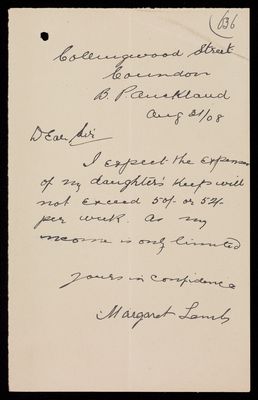 636
Collingwood Street
Coundon
B. P Auckland
Aug 31/08
Dear Sir
I expect the expenses
of my daughter's keep will
not exceed 50/- or 52/-
per week. as my
income is only limited
yours in confidence
Margaret Lamb